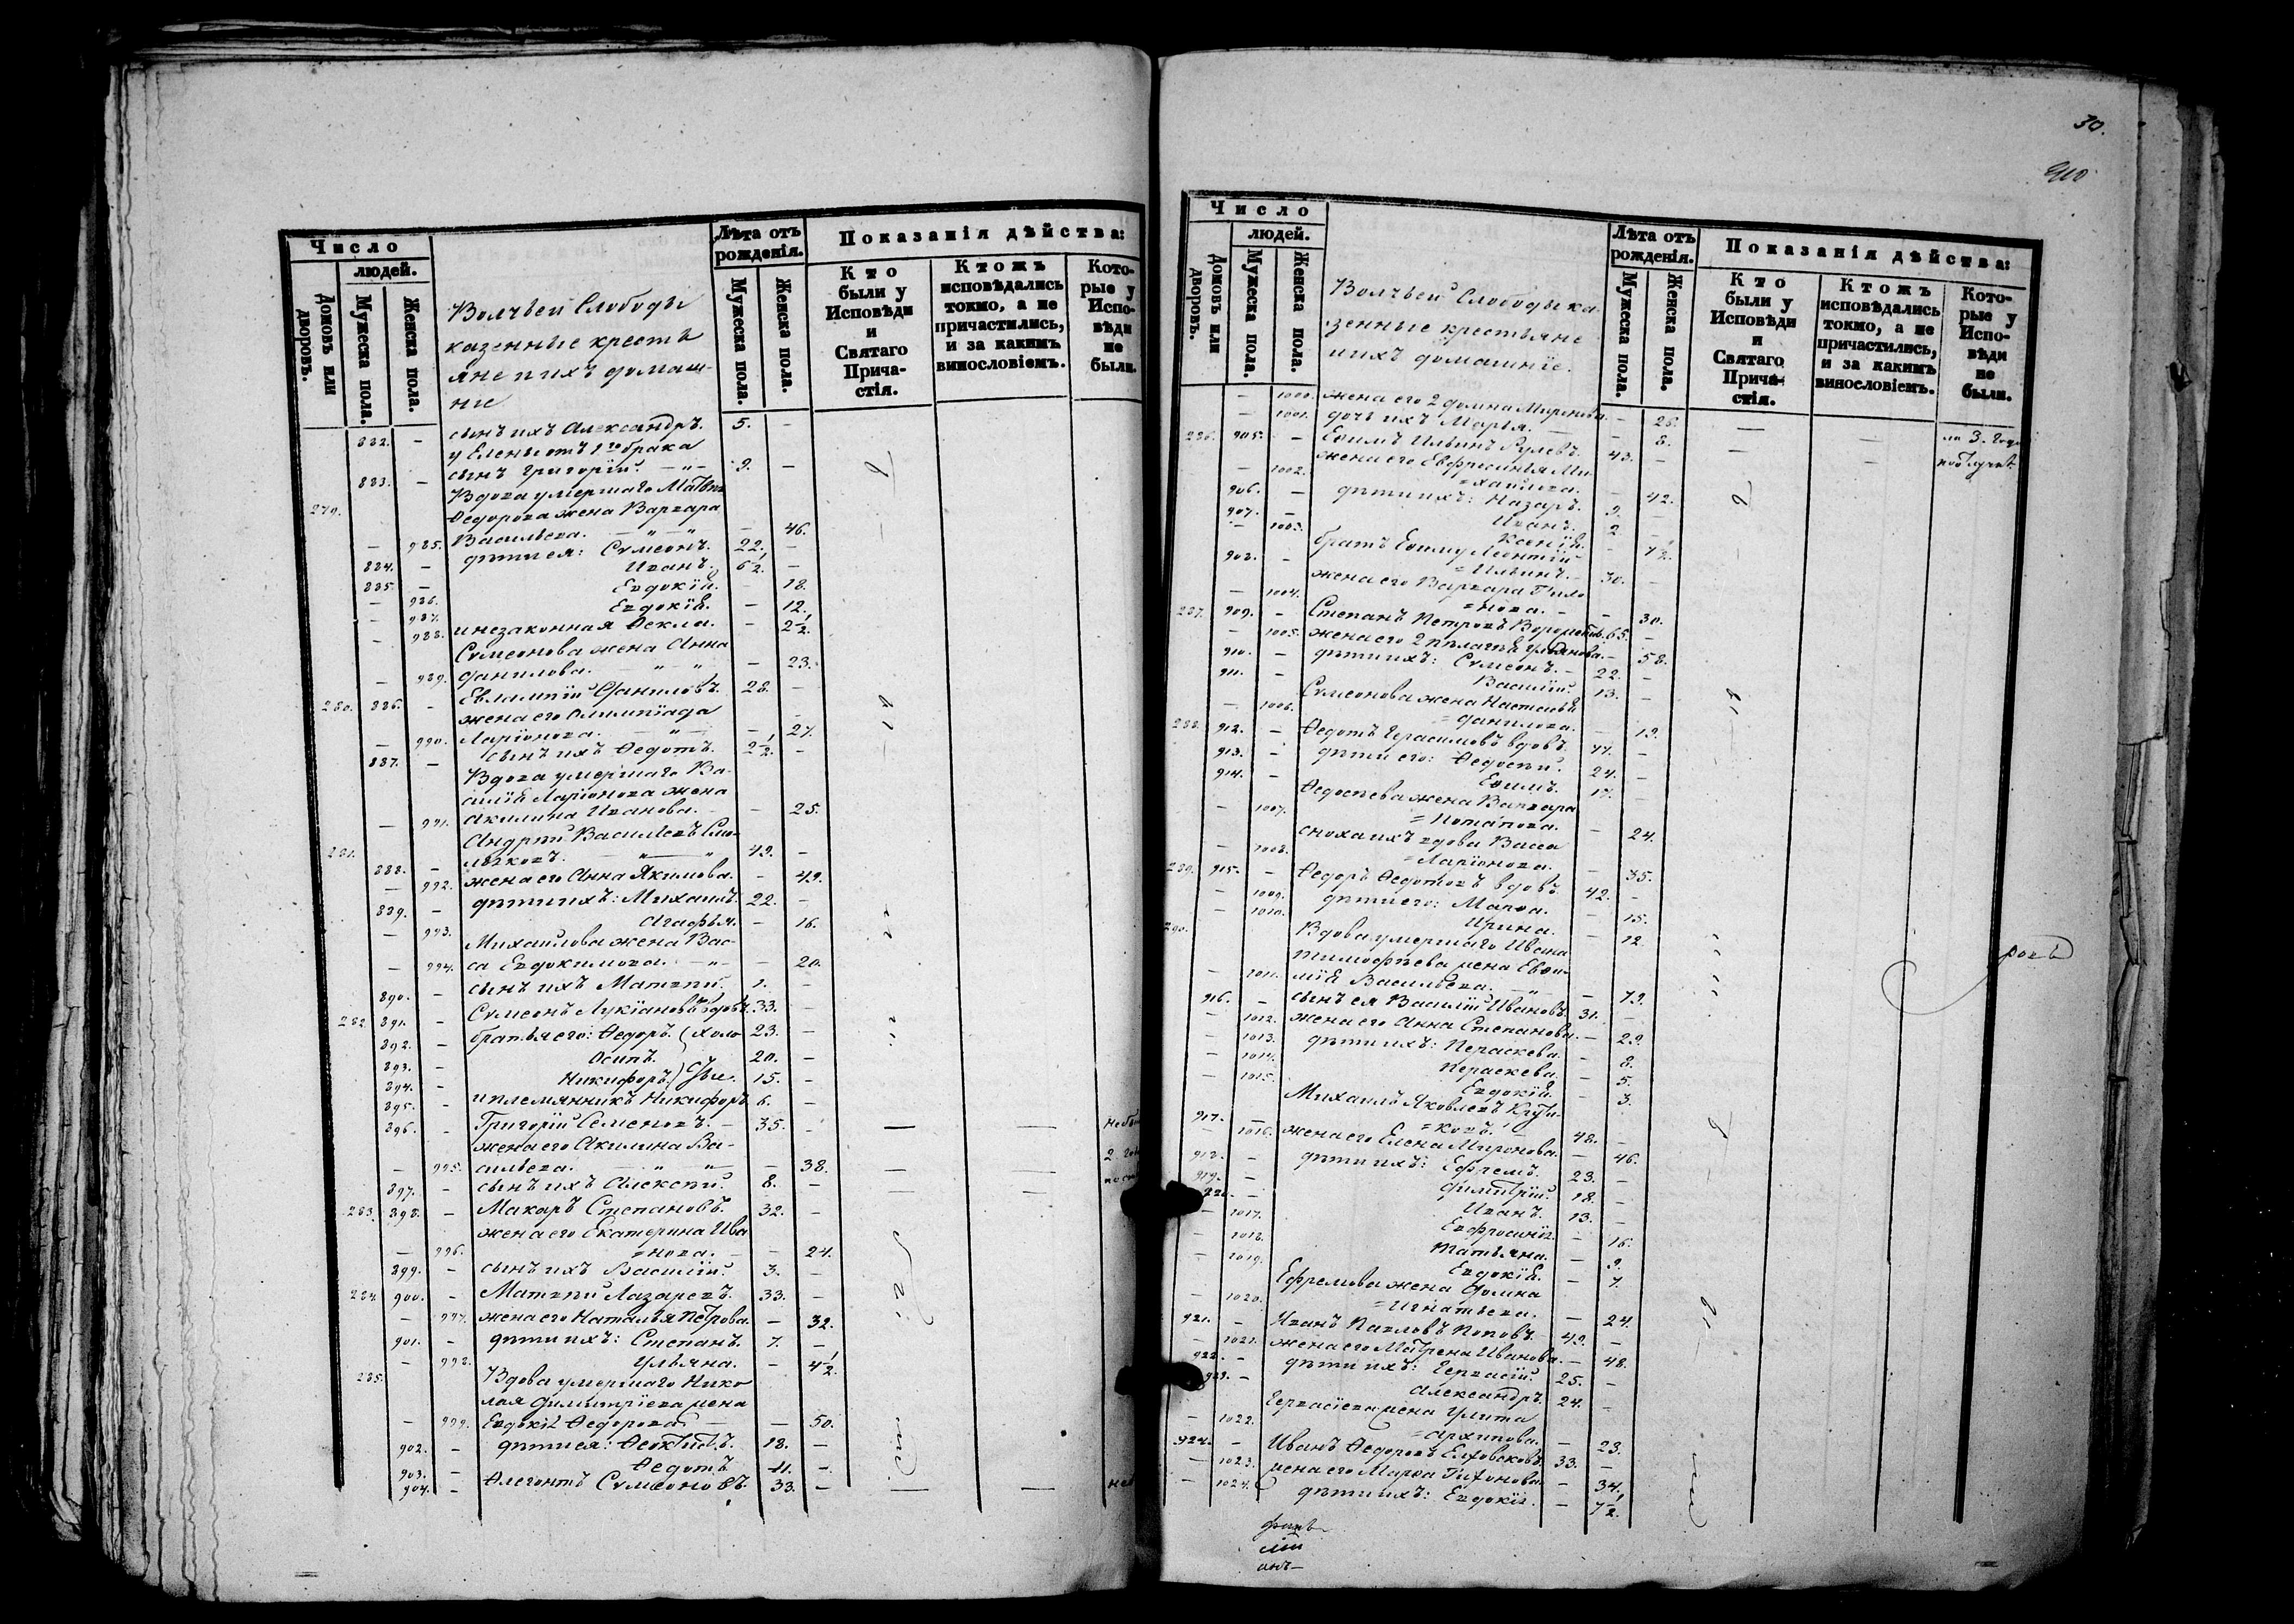 Число
людей.
Домовъ или дворовъ.
Мужеска пола.
Женска пола.
Волчьей Слободы
казенные кресть
яне и ихъ домаш-
ніе
Лѣта отъ рожденія.
Мужеска пола.
Женска пола.
Показанія дѣйства:
Кто были у Исповѣди и Святаго Прича-стія.
Ктожъ исповѣдались токмо, а не причастились, и за какимъ винословіемъ.
Кото-рые у Испо-вѣди не были.
882. – сынъ ихъ Александръ. 5. –
у Елены отъ 1го брака
883. – сынъ Григорій. – 9. –
279. Вдова умершаго Матвея
Ѳедорова жена Варвара
– 985. Васильева. – 46.
884. – дѣти ея: Сѵмеонъ. 22. –
885. – Иванъ. 6½. –
– 986. Евдокія. – 18.
– 987. Евдокія. – 12.
– 988. и незаконная Ѳекла. – 2½.
Сѵмеонова жена Анна
– 989. Данилова. – 23.
280. 886. – Евлампій Даниловъ. 28. –
жена его Олимпіада
– 990. Ларіонова. – 27.
887. – сынъ ихъ Ѳедотъ. 2½. –
Вдова умершаго Ва-
силія Ларіонова жена
– 991. Акилина Иванова. – 25.
281. Андрей Васильевъ
888. – 49. –
– 992. жена его Анна Якимова. – 49.
889. – дѣти ихъ: Михаилъ. 22. –
– 993. Агафья. – 16.
Михайлова жена Вас-
– 994. са Евдокимова. – 20.
890. – сынъ ихъ Матвей. 1. –
282. 891. – Сѵмеонъ Лукіановъ вдовъ. 33. –
892. – братья его: Ѳедоръ. (холо 23. –
893. – Осипъ. 20. –
894. – Никифоръ.) 15. –
895. – и племянникъ Никифоръ 6. –
896. – Григорій Семеновъ. – 35. –
жена его Акилина Ва-
– 995. сильева. – 38.
897. – сынъ ихъ Алексей. 8. –
283. 898. – Макаръ Степановъ. 32. –
жена его Екатерина Ива
– 996. =нова. – 24.
899. – сынъ ихъ Василій. 3. –
284. 900. – Матвей Лазаревъ. 33. –
– 997. жена его Наталья Петрова. – 32.
901. – дѣти ихъ: Степанъ. 7. –
– 998. Ульяна. – 4½.
285. Вдова умершаго Нико
лая Димитріева жена
– 999. Евдокія Ѳедорова – 50.
902. – дѣти ея: Ѳеоктистъ. 18. –
903. – Ѳедотъ 11. –
904. – Флегонтъ Сѵмеоновъ. 33. –
30.
Число
людей.
Домовъ или дворовъ.
Мужеска пола.
Женска пола.
Волчьей Слободы ка-
зенные крестьяне
и ихъ домашніе.
Лѣта отъ рожденія.
Мужеска пола.
Женска пола.
Показанія дѣйства:
Кто были у Исповѣди и Святаго Прича-стія.
Ктожъ исповѣдались токмо, а не причастились, и за какимъ винословіемъ.
Кото-рые у Испо-вѣди не были.
– 1000. жена его 2 Домна Миронова. – 26.
– 1001. дочь ихъ Марья. – 8.
286. 905. – Еѳимъ Ильинъ Рулевъ. 43. –
жена его Евфросинія Ми-
– 1002. =хайлова. – 42.
906. – дѣти ихъ: Назаръ. 9. –
907. – Иванъ. 2 –
– 1003. Ксенія. – 7½.
братъ Еѳиму Леонтій
908. – =Ильинъ. 30. –
жена его Варвара Тихо
– 1004. =нова. – 30.
287. 909. – Степанъ Петровъ 65. –
– 1005. жена его 2 Пелагія Ульянова. – 58.
910. – дѣти ихъ: Сѵмеонъ. 22. –
911. – Василій. 13. –
Сѵмеонова жена Настасія
– 1006. =Данилова. – 19.
288. 912. – Ѳедотъ Герасимовъ вдовъ. 77. –
913. – дѣти его: Ѳедосѣй. 24. –
914. – Еѳимъ. 17. –
Ѳедосѣева жена Варвара
– 1007. =Потапова. – 24.
сноха ихъ вдова Васса
– 1008. =Ларіонова. – 35.
289. 915. – Ѳедоръ Ѳедотовъ вдовъ. 42. –
– 1009. дѣти его: Марѳа. – 15.
– 1010. Ирина. – 12
290. Вдова умершаго Ивана
Тимофѣева жена Евѳи-
– 1011. мія Васильева. – 79.
916. – сынъ ея Василій Ивановъ. 31. –
– 1012. жена его Анна Степанова. – 29.
– 1013. дѣти ихъ: Параскева. – 8.
– 1014. Параскева. – 5.
– 1015. Евдокія. – 3.
Михаилъ Яковлевъ
917. – =ковъ. 48. –
– 1016. жена его Елена Миронова. – 46.
918. – дѣти ихъ: Ефремъ. 23. –
919. – Димитрій. 18. –
920. – Иванъ. 13. –
– 1017. Евфросинія. – 16.
– 1018. Татьяна. – 9.
– 1019. Евдокія. – 7.
Ефремова жена Домна
– 1020. =Игнатьева. – 24.
921. – Иванъ Павловъ Поповъ. 49. –
– 1021. жена его Матрена Иванова. – 48.
922. – дѣти ихъ: Гервасій. 25. –
923. – Александръ. 24. –
Гервасіева жена Улита
– 1022. =Архипова. – 23.
924. – Иванъ Ѳедоровъ Елховсковъ. 33. –
– 1023. жена его Марѳа Тихонова. – 34.
– 1024. дѣти ихъ: Евдокія. – 7½.